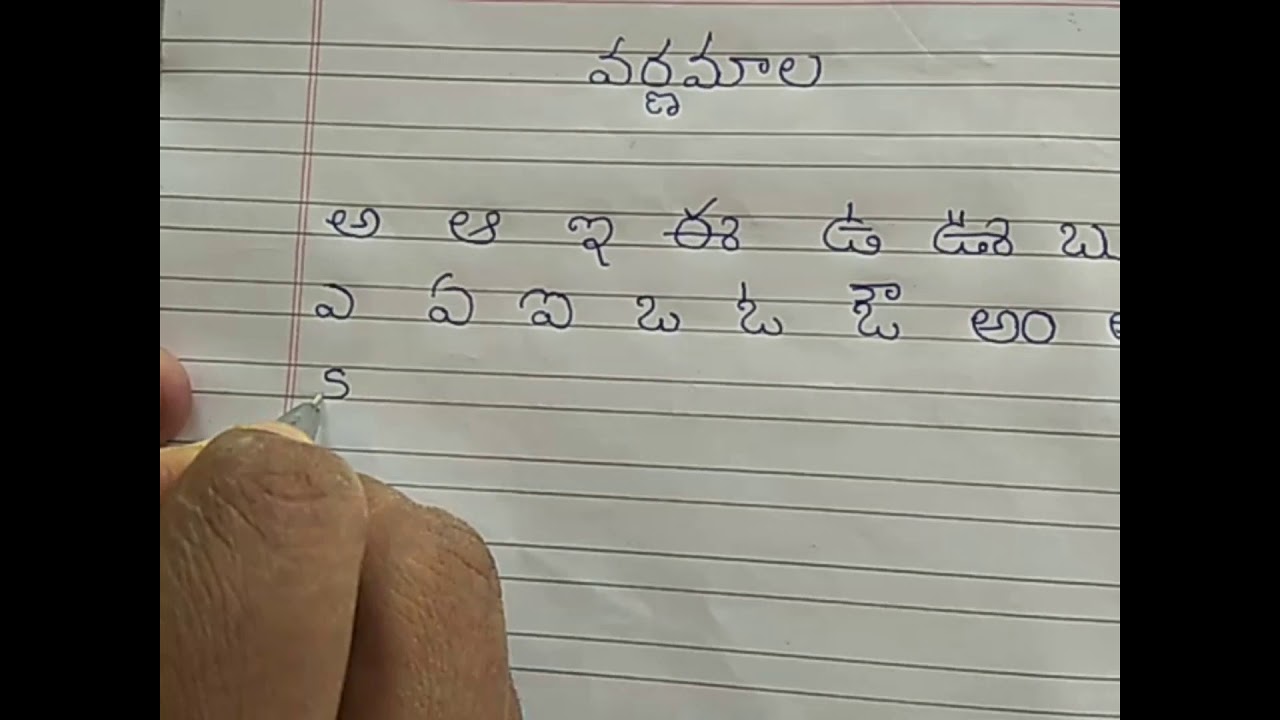 వర్ణమాల
అ ఆ ఇ ఈ ఉ ఊ ఋ
ఎ ఏ ఐ ఒ ఓ ఔ అం